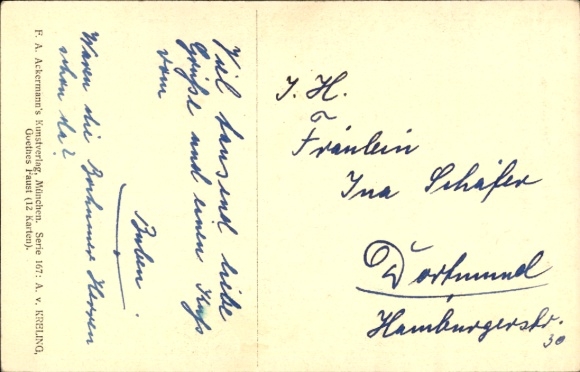 Viel tausend liebe
Grüße und einen Kuß
vom
Buben.
Waren die Bochumer Herren
schon da?
F. A. Ackermann's Kunstverlag, München. Serie 167: A. v. KRELING,
Goethes Faust (12 Karten).
I. H.
Fräulein
Ina Schäfer
Dortmund
Hamburgerstr.
30